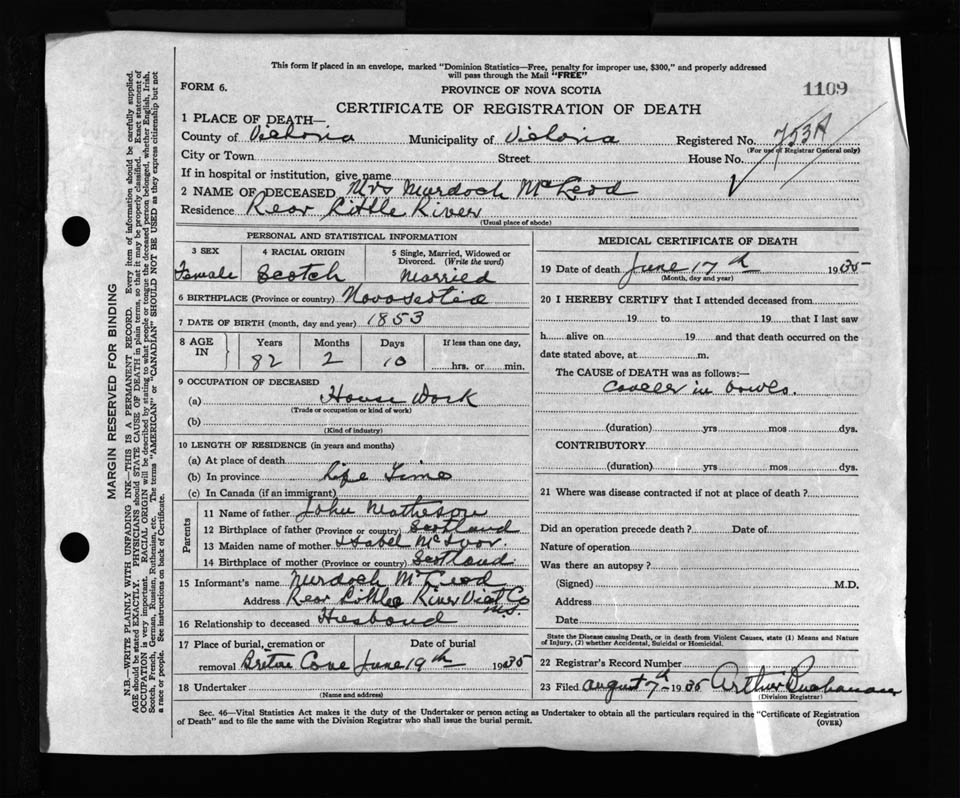 This form if placed in an envelope, marked "Dominion Statistics—Free, penalty for improper use, $300," and properly addressed
will pass through the Mail "FREE"
FORM 6.
PROVINCE OF NOVA SCOTIA
1109
CERTIFICATE OF REGISTRATION OF DEATH
1 PLACE OF DEATH—
County of Victoria Municipality of Victoria Registered No. 753A
(For use of Registrar General only)
City or Town Street House No.
If in hospital or institution, give name
2 NAME OF DECEASED Mrs Murdoch McLeod
Residence Rear Little River
(Usual place of abode)
PERSONAL AND STATISTICAL INFORMATION
3 SEX 4 RACIAL ORIGIN 5 Single, Married, Widowed or
Divorced. (Write the word)
Female Scotch Married
6 BIRTHPLACE (Province or country) Nova Scotea
7 DATE OF BIRTH (month, day and year) 1853
8 AGE IN Years Months Days If less than one day,
82 2 10 hrs. or min.
9 OCCUPATION OF DECEASED
(a) House Work
(Trade or occupation or kind of work)
(b)
(Kind of industry)
10 LENGTH OF RESIDENCE (in years and months)
(a) At place of death
(b) In province Life Time
(c) In Canada (if an immigrant)
Parents
11 Name of father John Matheson
12 Birthplace of father (Province or country) Scotland
13 Maiden name of mother Isabel McIvor
14 Birthplace of mother (Province or country) Scotland
15 Informant's name Murdoch McLeod
Address Rear Little River Vict Co
N.S.
16 Relationship to deceased Husband
17 Place of burial, cremation or Date of burial
removal Breton Cove June 19th 1935
18 Undertaker
(Name and address)
MEDICAL CERTIFICATE OF DEATH
19 Date of death June 17th 1935
(Month, day and year)
20 I HEREBY CERTIFY that I attended deceased from
19 to 19 that I last saw
h alive on 19 and that death occurred on the
date stated above, at m.
The CAUSE of DEATH was as follows:—
Cancer in bowles.
(duration) yrs mos dys.
CONTRIBUTORY
(duration) yrs mos dys.
21 Where was disease contracted if not at place of death?
Did an operation precede death? Date of
Nature of operation
Was there an autopsy?
(Signed) M.D.
Address
Date
State the Disease causing Death, or in death from Violent Causes, state (1) Means and Nature
of Injury, (2) whether Accidental, Suicidal or Homicidal.
22 Registrar's Record Number
23 Filed august 7th 1935 Arthur Buchanan
(Division Registrar)
Sec. 46—Vital Statistics Act makes it the duty of the Undertaker or person acting as Undertaker to obtain all the particulars required in the "Certificate of Registration
of Death" and to file the same with the Division Registrar who shall issue the burial permit.
(OVER)
MARGIN RESERVED FOR BINDING
N.B.—WRITE PLAINLY WITH UNFADING INK—THIS IS A PERMANENT RECORD. Every item of information should be carefully supplied.
AGE should be stated EXACTLY. PHYSICIANS should STATE CAUSE OF DEATH in plain terms, so that it may be properly classified. Exact statement of
OCCUPATION is very important. RACIAL ORIGIN will be described by stating to what people or tongue the deceased person belonged, whether English, Irish,
Scotch, French, German, Russian, Ruthenian, etc. The terms "AMERICAN" or "CANADIAN" SHOULD NOT BE USED as they express citizenship but not
a race or people. See instructions on back of Certificate.